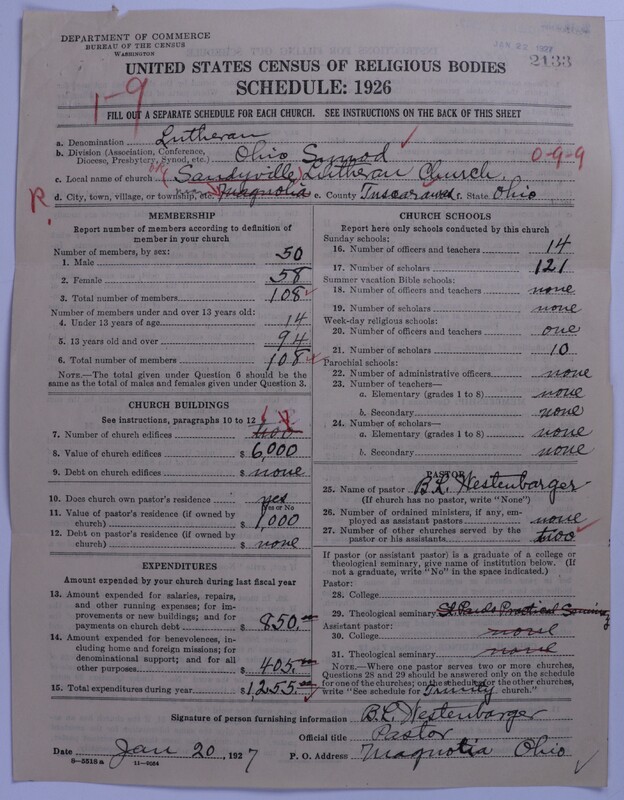 DEPARTMENT OF COMMERCE
BUREAU OF THE CENSUS
WASHINGTON
JAN 22 1927
2133
UNITED STATES CENSUS OF RELIGIOUS BODIES
SCHEDULE: 1926
1-9
FILL OUT A SEPARATE SCHEDULE FOR EACH CHURCH. SEE INSTRUCTIONS ON THE BACK OF THIS SHEET
a. Denomination Lutheran
b. Division (Association, Conference, Diocese, Presbytery, Synod, etc.) Ohio Synod
0-9-9
c. Local name of church (Sandyville) Lutheran Church
R.
d. City, town, village, or township, etc. near Magnolia e. County Tuscarawas f. State Ohio
MEMBERSHIP
Report number of members according to definition of member in your church
Number of members, by sex:
1. Male 50
2. Female 58
3. Total number of members 108
Number of members under and over 13 years old:
4. Under 13 years of age 14
5. 13 years old and over 94
6. Total number of members 108
NOTE.—The total given under Question 6 should be the same as the total of males and females given under Question 3.
CHURCH BUILDINGS
See instructions, paragraphs 10 to 12
7. Number of church edifices
8. Value of church edifices $ 6,000
9. Debt on church edifices $ none
10. Does church own pastor's residence yes
(Yes or No)
11. Value of pastor's residence (if owned by church) $ 1,000
12. Debt on pastor's residence (if owned by church) $ none
EXPENDITURES
Amount expended by your church during last fiscal year
13. Amount expended for salaries, repairs, and other running expenses; for improvements or new buildings; and for payments on church debt $ 850.00
14. Amount expended for benevolences, including home and foreign missions; for denominational support; and for all other purposes $ 405.00
15. Total expenditures during year $ 1,255.00
CHURCH SCHOOLS
Report here only schools conducted by this church
Sunday schools:
16. Number of officers and teachers 14
17. Number of scholars 121
Summer vacation Bible schools:
18. Number of officers and teachers none
19. Number of scholars none
Week-day religious schools:
20. Number of officers and teachers one
21. Number of scholars 10
Parochial schools:
22. Number of administrative officers none
23. Number of teachers—
a. Elementary (grades 1 to 8) none
b. Secondary none
24. Number of scholars—
a. Elementary (grades 1 to 8) none
b. Secondary none
PASTOR
25. Name of pastor B.L. Westenbarger
(If church has no pastor, write "None")
26. Number of ordained ministers, if any, employed as assistant pastors none
27. Number of other churches served by the pastor or his assistants two
If pastor (or assistant pastor) is a graduate of a college or theological seminary, give name of institution below. (If not a graduate, write "No" in the space indicated.)
Pastor:
28. College
29. Theological seminary St. Pauls Practical Seminary
Assistant pastor:
30. College none
31. Theological seminary none
NOTE.—Where one pastor serves two or more churches, Questions 28 and 29 should be answered only on the schedule for one of the churches; on the schedule for the other churches, write "See schedule for Trinity church."
Signature of person furnishing information B.L. Westenbarger
Official title Pastor
Date Jan 20, 1927 P. O. Address Magnolia Ohio
8-5518a 11-9034